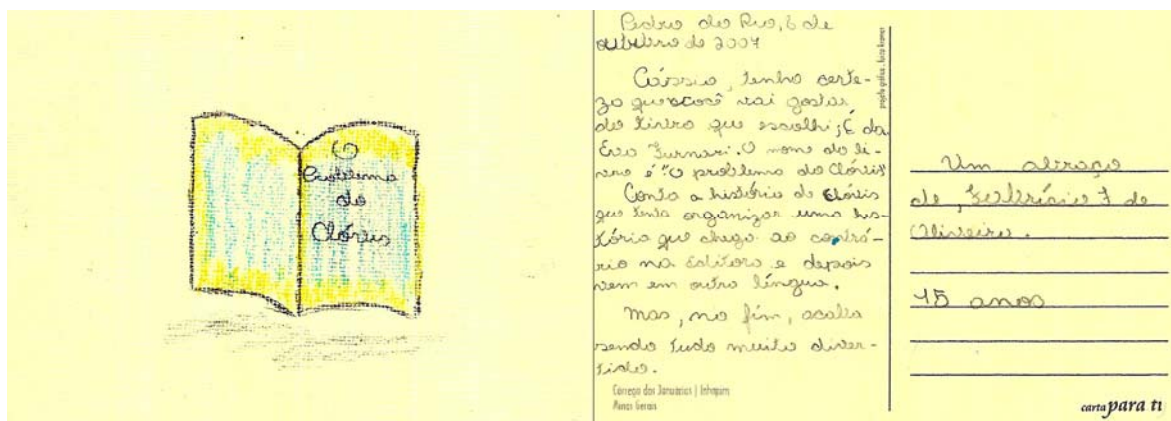 O
Problema
do
Clóvis
Pedro do Rio, 6 de
outubro de 2007
Cássia, tenho certe-
za que você vai gostar
do livro que escolhi; É da
Eva Furnari. O nome do li-
vro é "O problema do Clóvis"
Conta a história de Clóvis
que tenta organizar uma his-
tória que chega ao contrá-
rio na Editora e depois
vem em outra língua.
Mas, no fim, acaba
sendo tudo muito diver-
tido.
Córrego dos Januários | Inhapim
Minas Gerais
projeto gráfico:
Um abraço
de, Fabrício F de
Oliveira.
15 anos
carta para ti